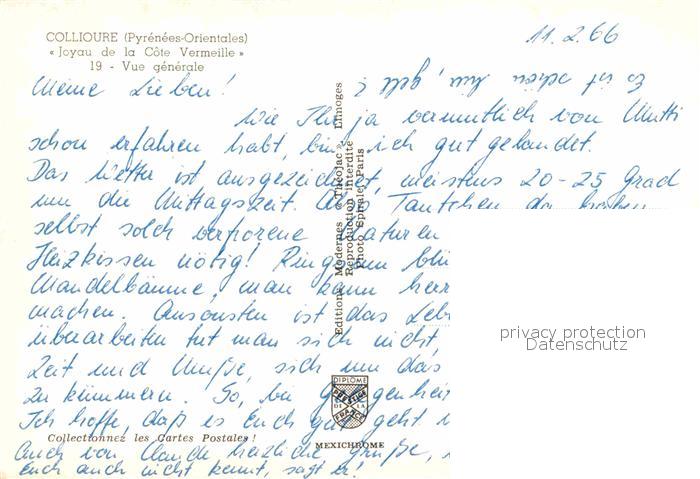 COLLIOURE (Pyrénées-Orientales)
« Joyau de la Côte Vermeille »
19 - Vue générale
11.2.66
Meine Lieben!
Wie Ihr ja vermutlich von Mutti
schon erfahren habt, bin ich gut gelandet.
Das Wetter ist ausgezeichnet, meistens 20-25 Grad
um die Mittagszeit. Also Tantchen da haben
selbst solch verfrorene Naturen
Heizkissen nötig! Rings um
Mandelbäume, man kann
machen. Ansonsten ist das
überarbeiten tut man sich nicht,
Zeit und Muße, sich um das
zu kümmern. So, bei
Ich hoffe, daß es Euch gut geht
Auch von Claude herzliche Grüße,
Euch auch nicht kennt, sagt er!
Editions Modernes « Théojac » Limoges
Reproduction Interdite
Photo Spirale Paris
DIPLOME
PRESTIGE
DE LA
FRANCE
Collectionnez les Cartes Postales !
MEXICHROME
privacy protection
Datenschutz